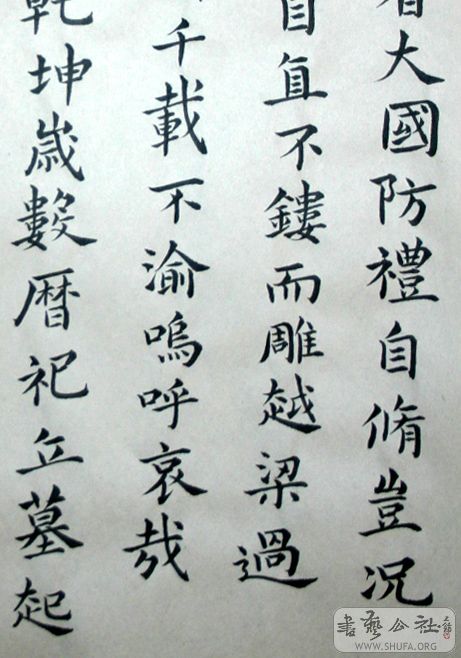 大國防禮自脩豈况
自直不鏤而雕越梁過
千載不渝嗚呼哀哉
乾坤歲數曆祀丘墓起
書藝公社
WWW.SHUFA.ORG